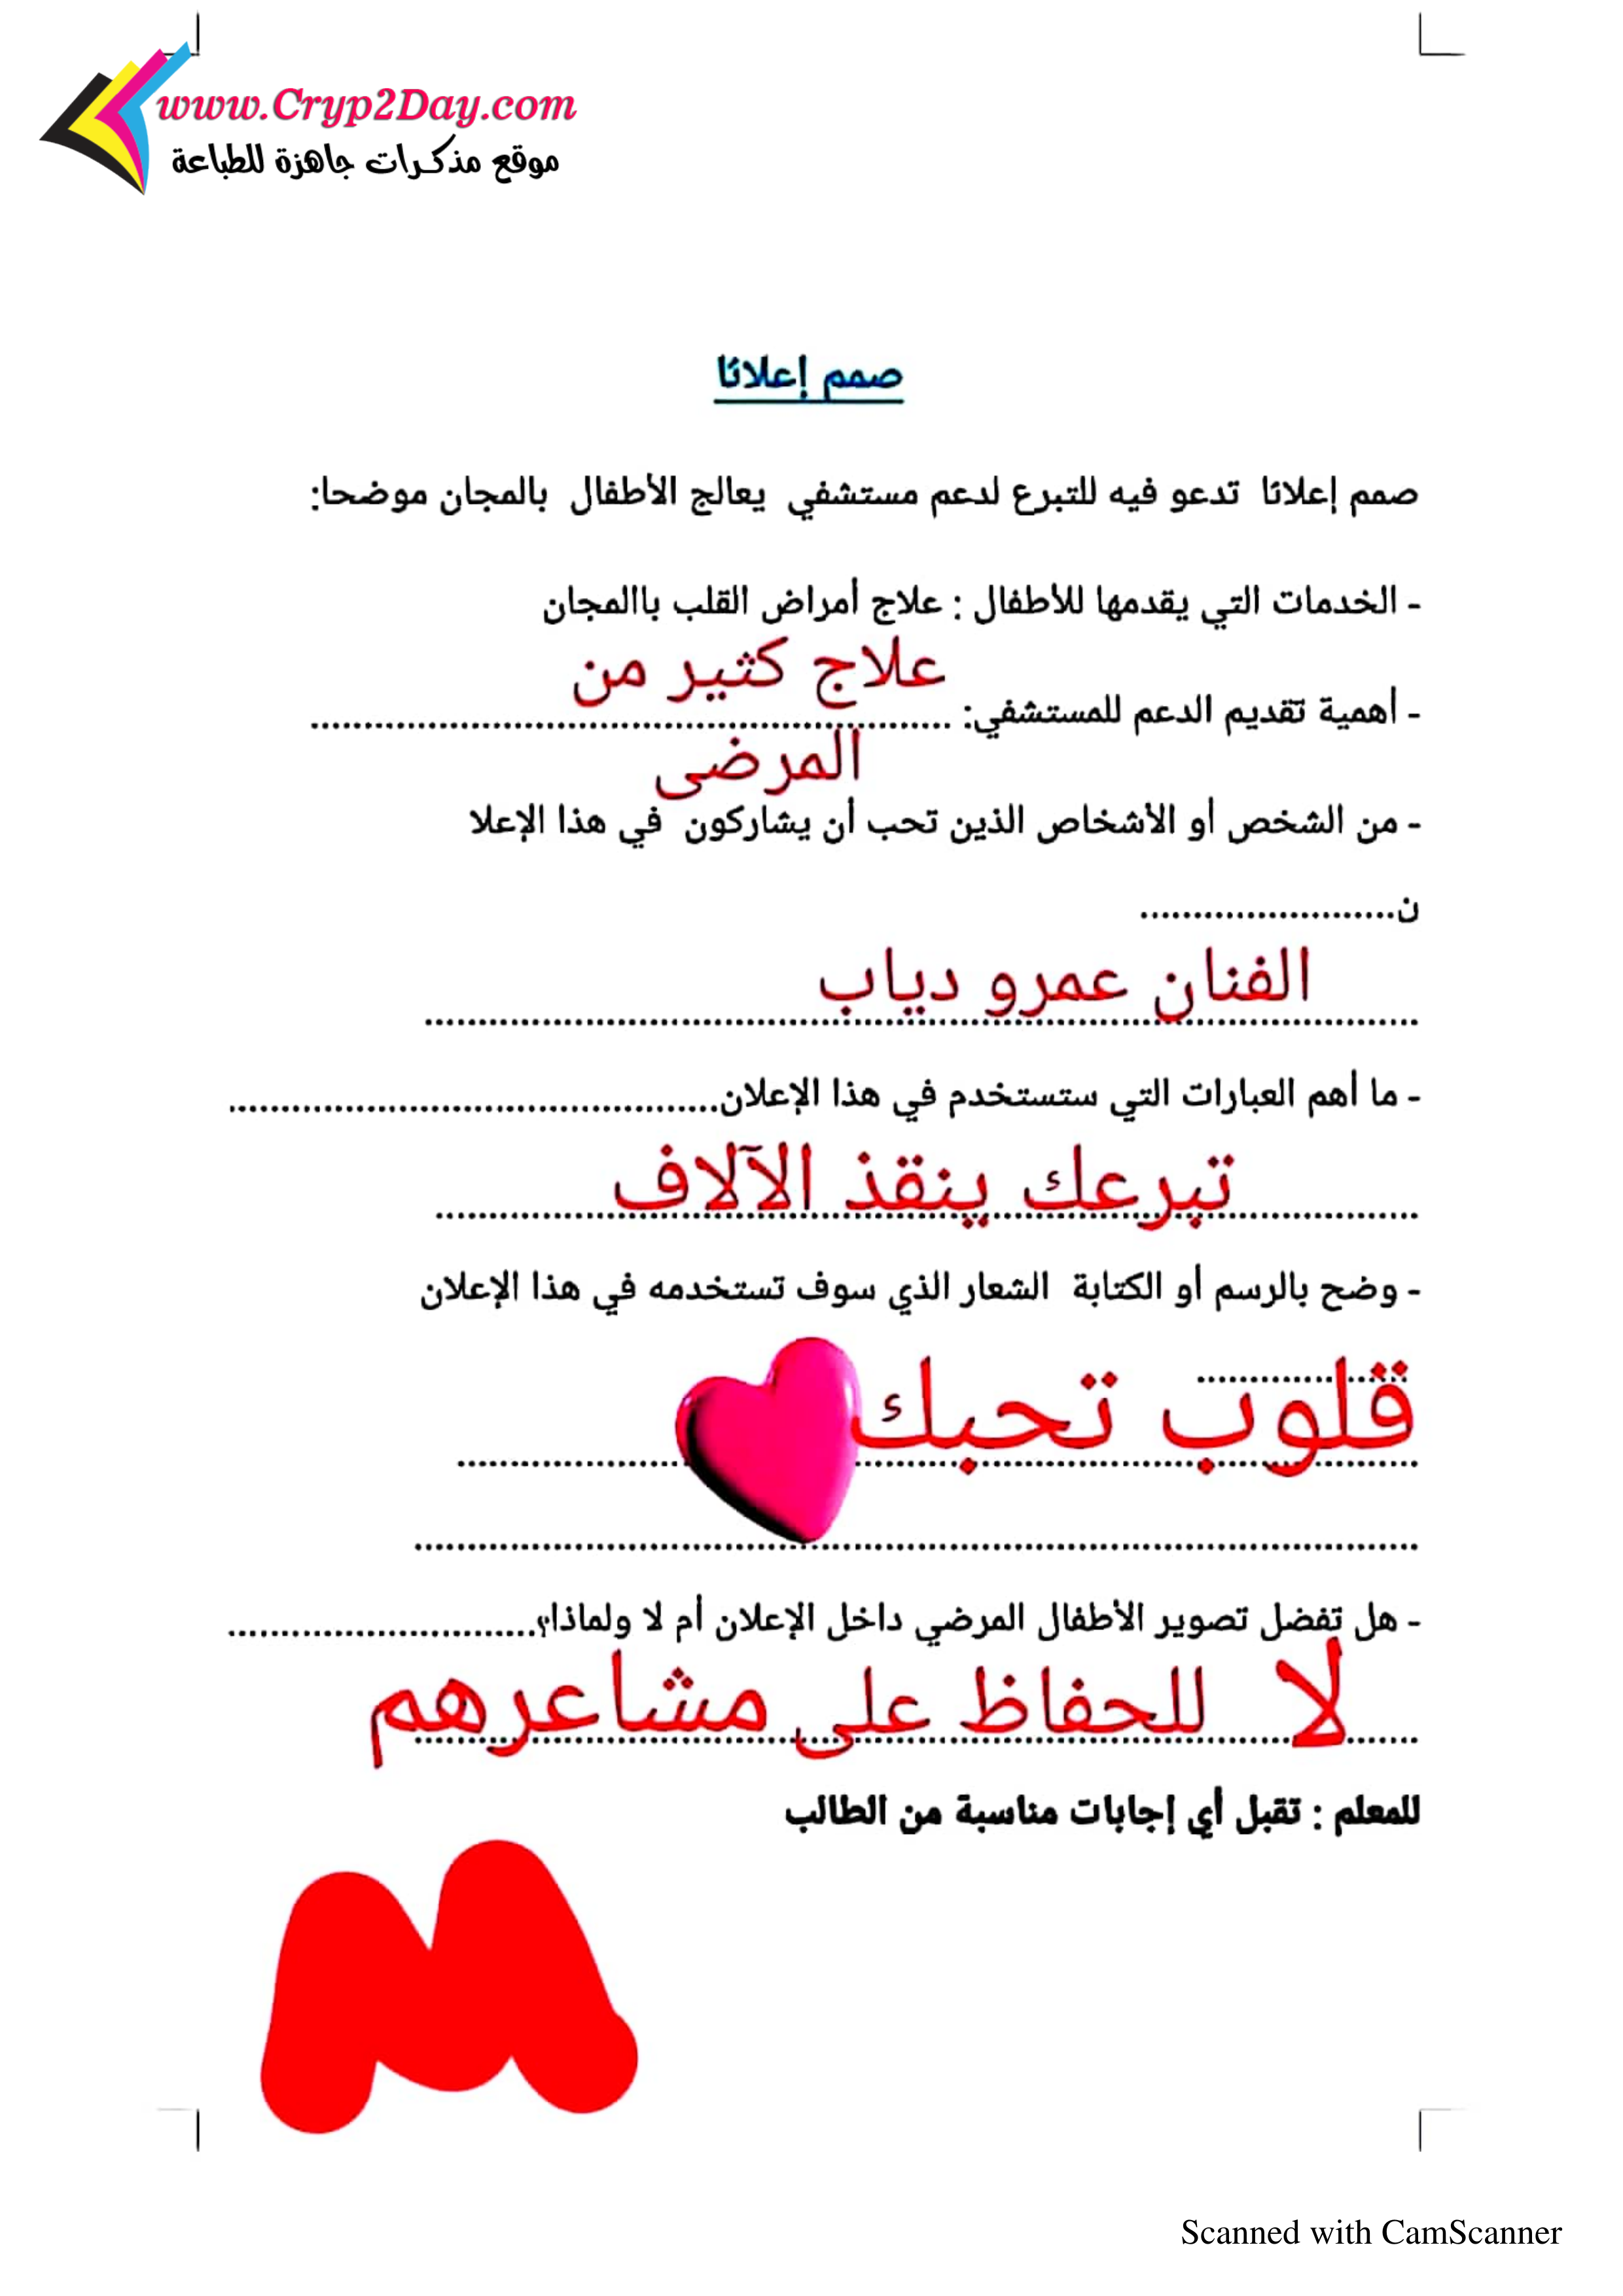 www.Cryp2Day.com
موقع مذكرات جاهزة للطباعة
صمم إعلانًا
صمم إعلانًا تدعو فيه للتبرع لدعم مستشفي يعالج الأطفال بالمجان موضحا:
- الخدمات التي يقدمها للأطفال : علاج أمراض القلب باالمجان
علاج كثير من
- أهمية تقديم الدعم للمستشفي: ............................................................
المرضى
- من الشخص أو الأشخاص الذين تحب أن يشاركون في هذا الإعلا
ن........................
الفنان عمرو دياب
- ما أهم العبارات التي ستستخدم في هذا الإعلان..............................................
تبرعك ينقذ الآلاف
- وضح بالرسم أو الكتابة الشعار الذي سوف تستخدمه في هذا الإعلان
قلوب تحبك
- هل تفضل تصوير الأطفال المرضي داخل الإعلان أم لا ولماذا؟.............................
لا للحفاظ على مشاعرهم
للمعلم : تقبل أي إجابات مناسبة من الطالب
M
Scanned with CamScanner